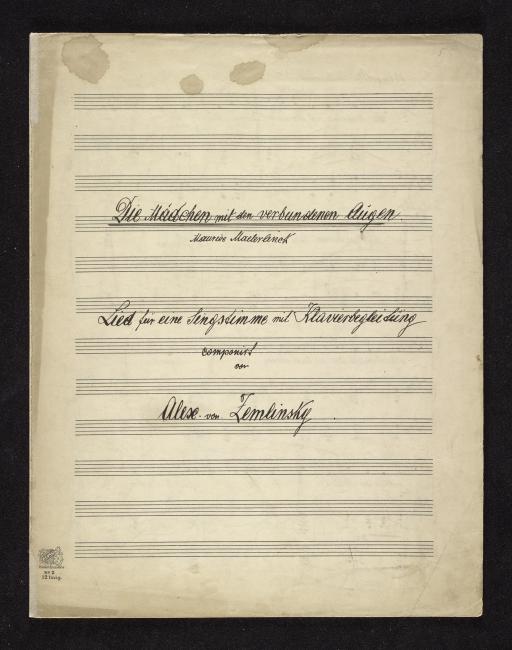 Die Mädchen mit den verbundenen Augen
Maurice Maeterlinck
Lied für eine Singstimme mit Klavierbegleitung
componirt
von
Alex. von Zemlinsky
No 2
12 linig.